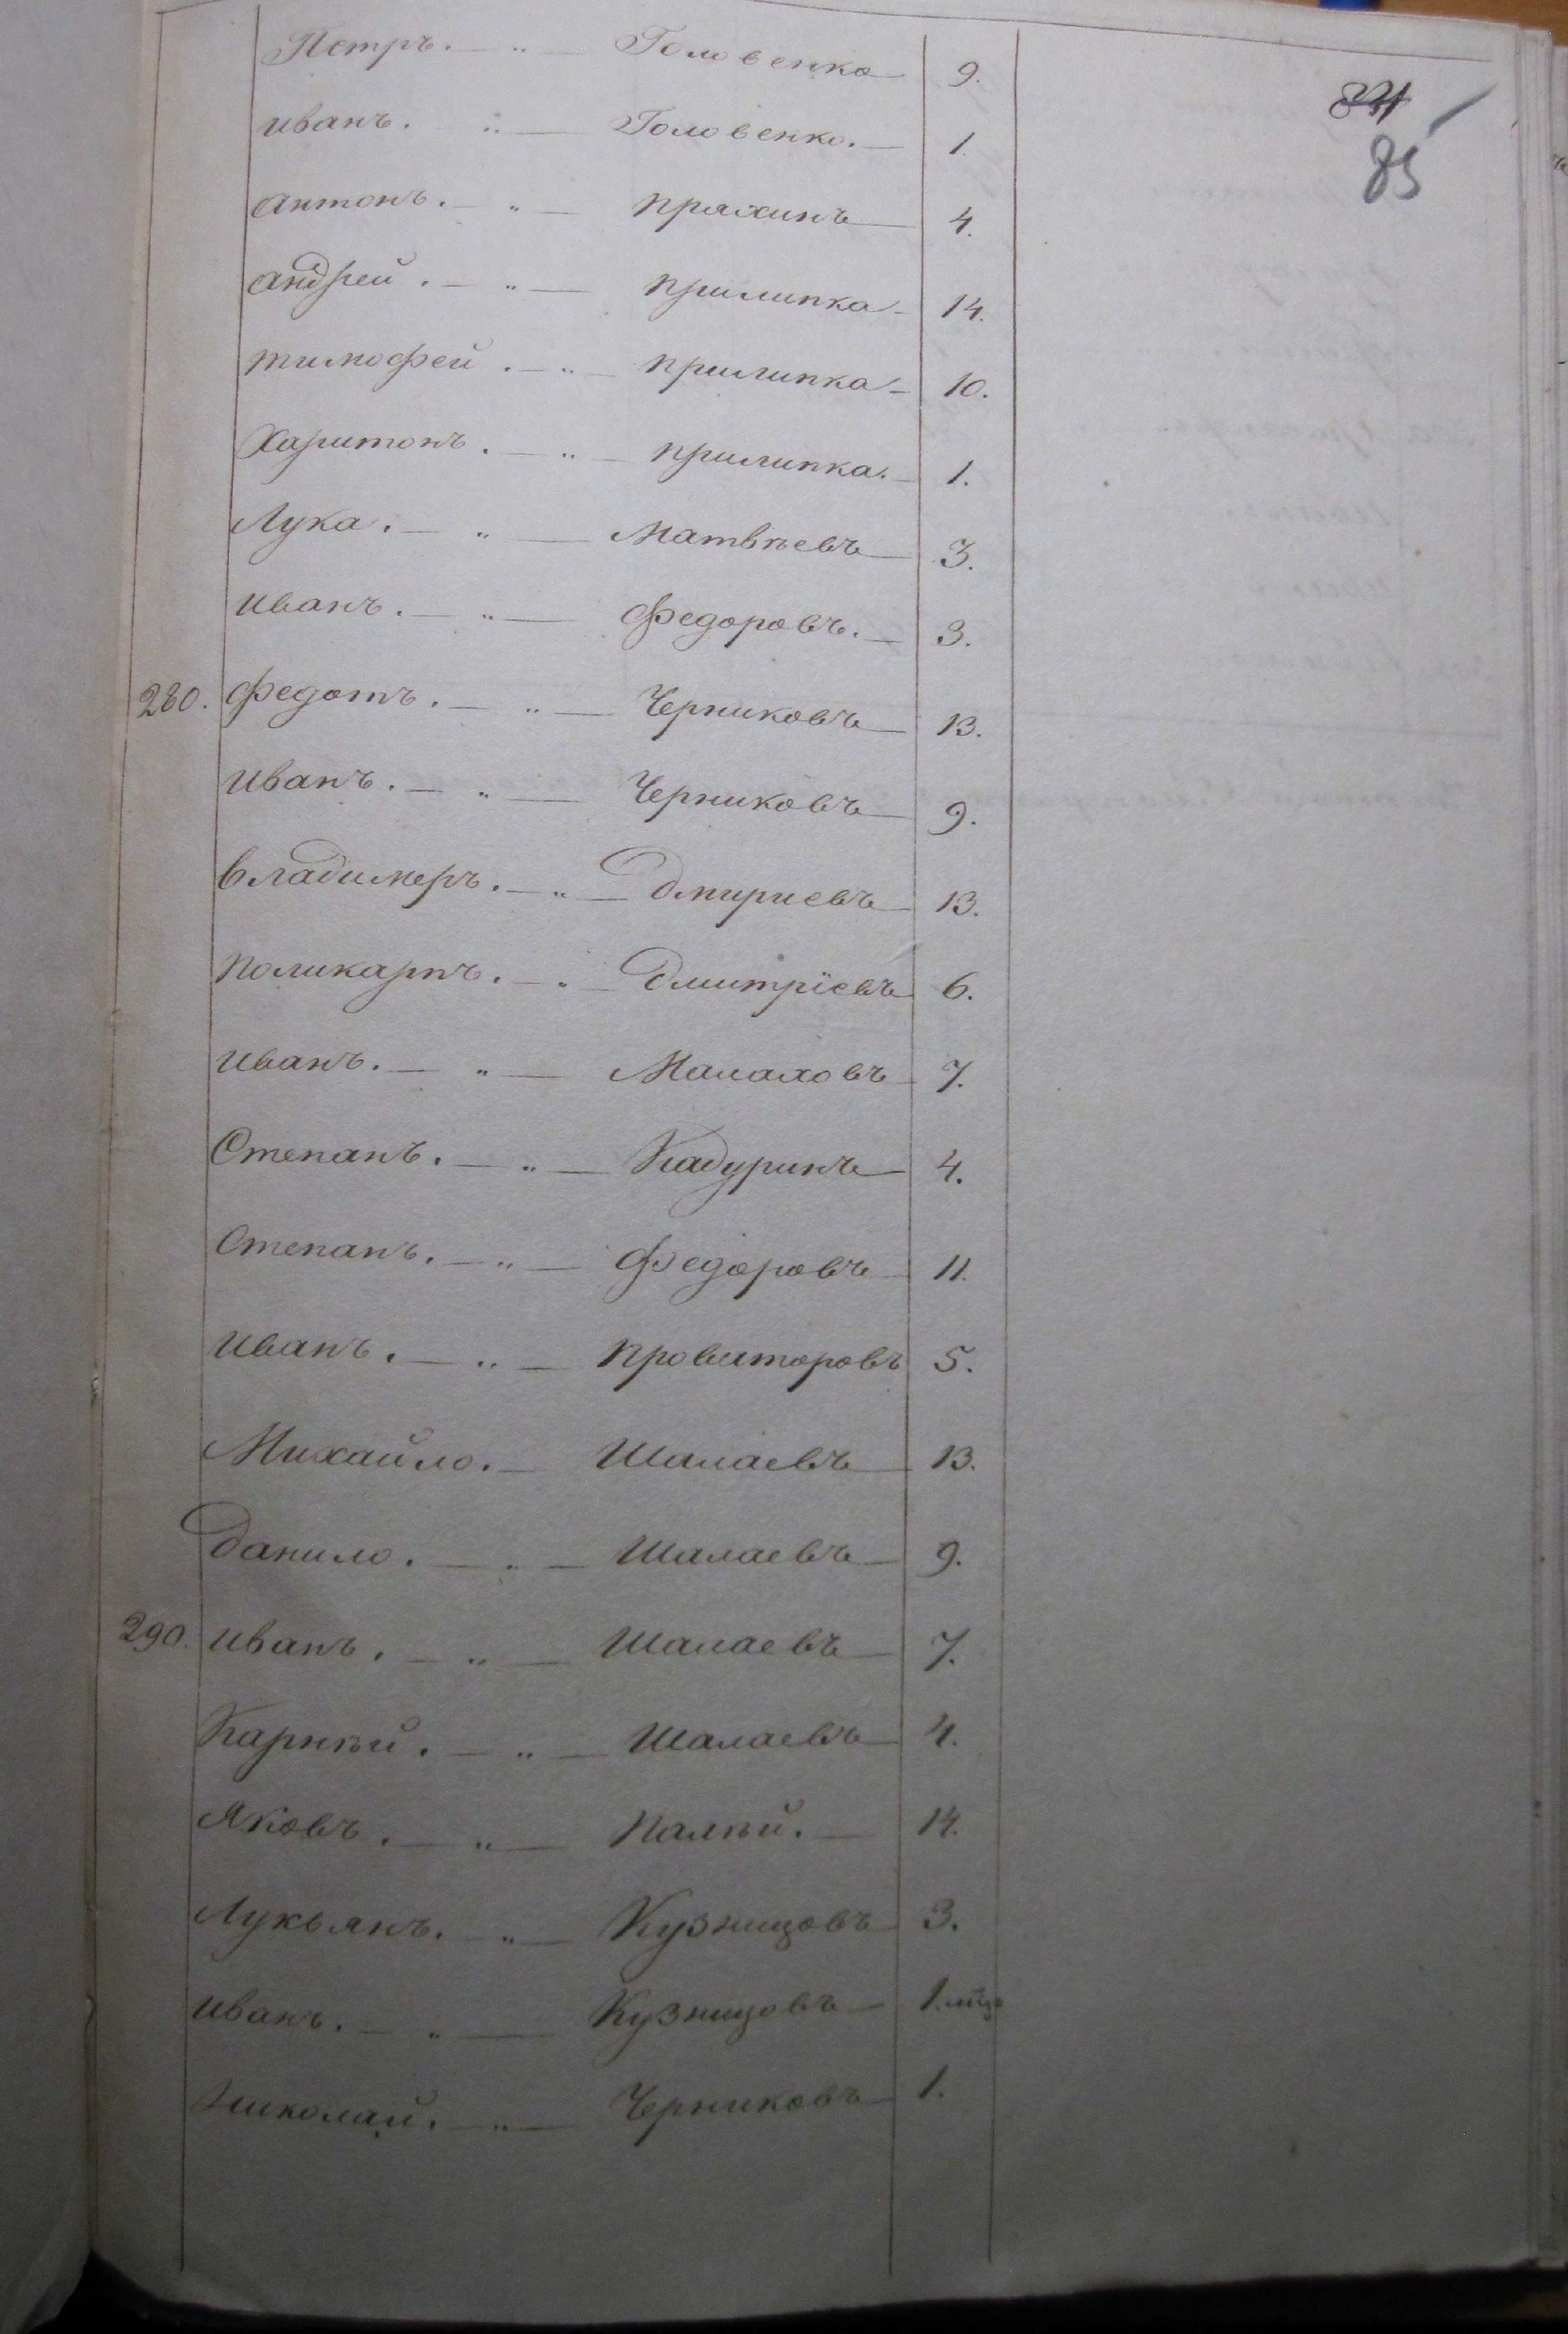 Петръ. — „ — Головенко — 9.
85
иванъ. „ — Головенко. — 1.
антонъ. — „ — пряхинъ — 4.
андрей. — „ — прилипка — 14.
тимофей. — „ — прилипка — 10.
Харитонъ. — „ — прилипка. — 1.
Лука. — „ — Матвѣевъ — 3.
иванъ. — „ — Федоровъ. — 3.
280. Федотъ. — „ — Черниковъ — 13.
иванъ. — „ — Черниковъ — 9.
владимеръ. — „ — Дмириевъ — 13.
поликарпъ. — „ — Дмитріевъ 6.
иванъ. — „ — Малаховъ — 7.
Степанъ. — „ — Кадуринъ — 4.
Степанъ. — „ — Федоровъ — 11.
иванъ. — „ — провиторовъ 5.
Михайло. — Шалаевъ — 13.
Данило. — „ — Шалаевъ — 9.
290. иванъ. — „ — Шалаевъ — 7.
Карнѣй. — „ — Шалаевъ — 4.
Яковъ. — „ — Палѣй. — 14.
Лукьянъ. „ — Кузницовъ — 3.
иванъ. — „ — Кузницовъ — 1.
николай. — „ — Черниковъ — 1.